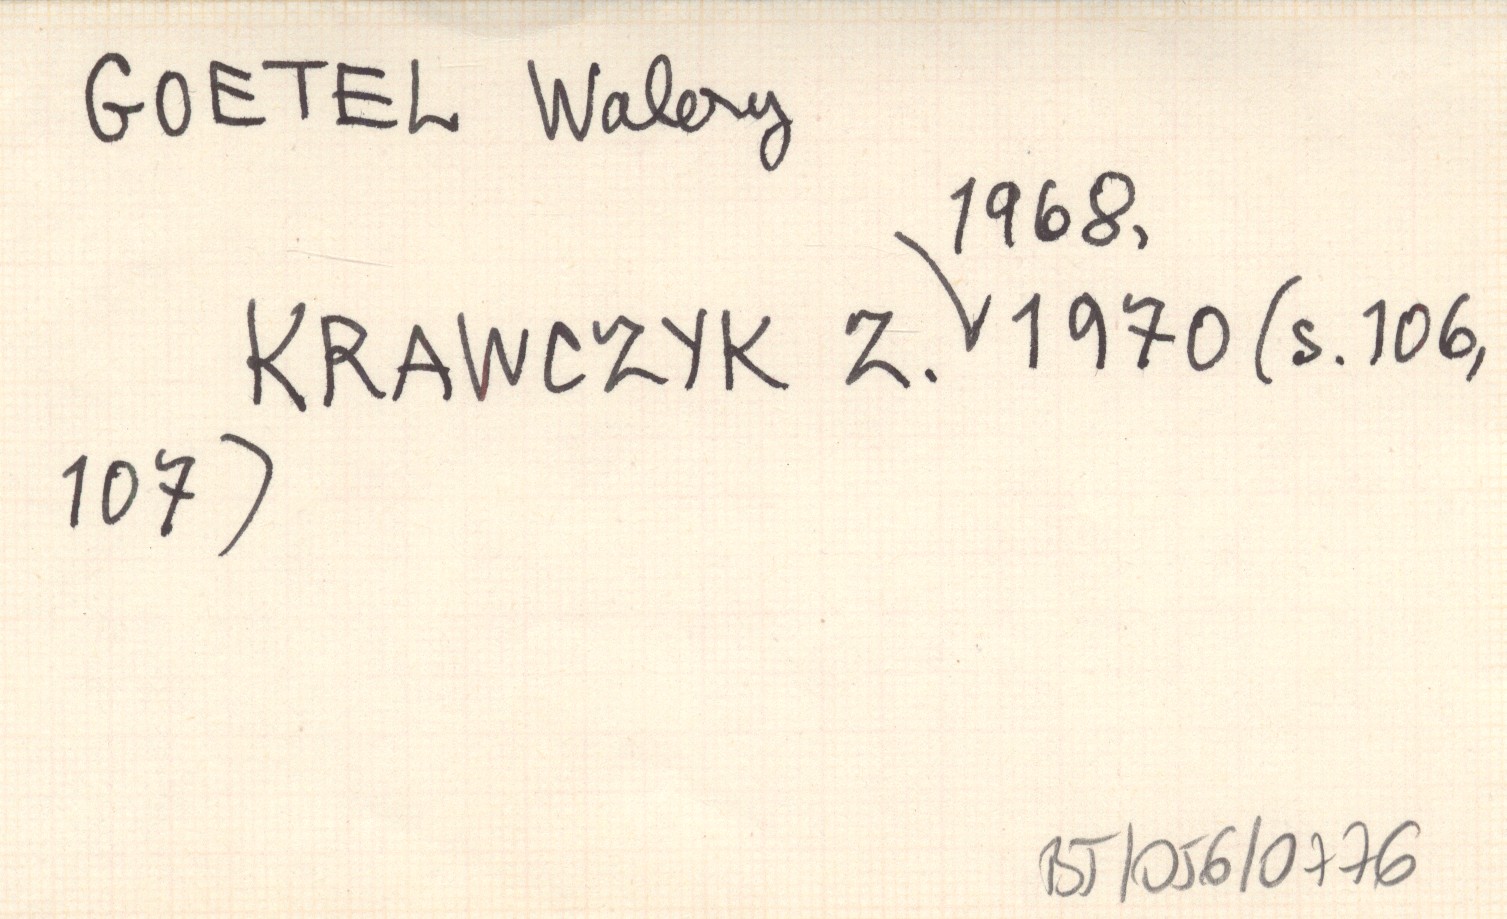 GOETEL Walery
1968,
KRAWCZYK Z. 1970 (s. 106,
107)
BJ/056/0776